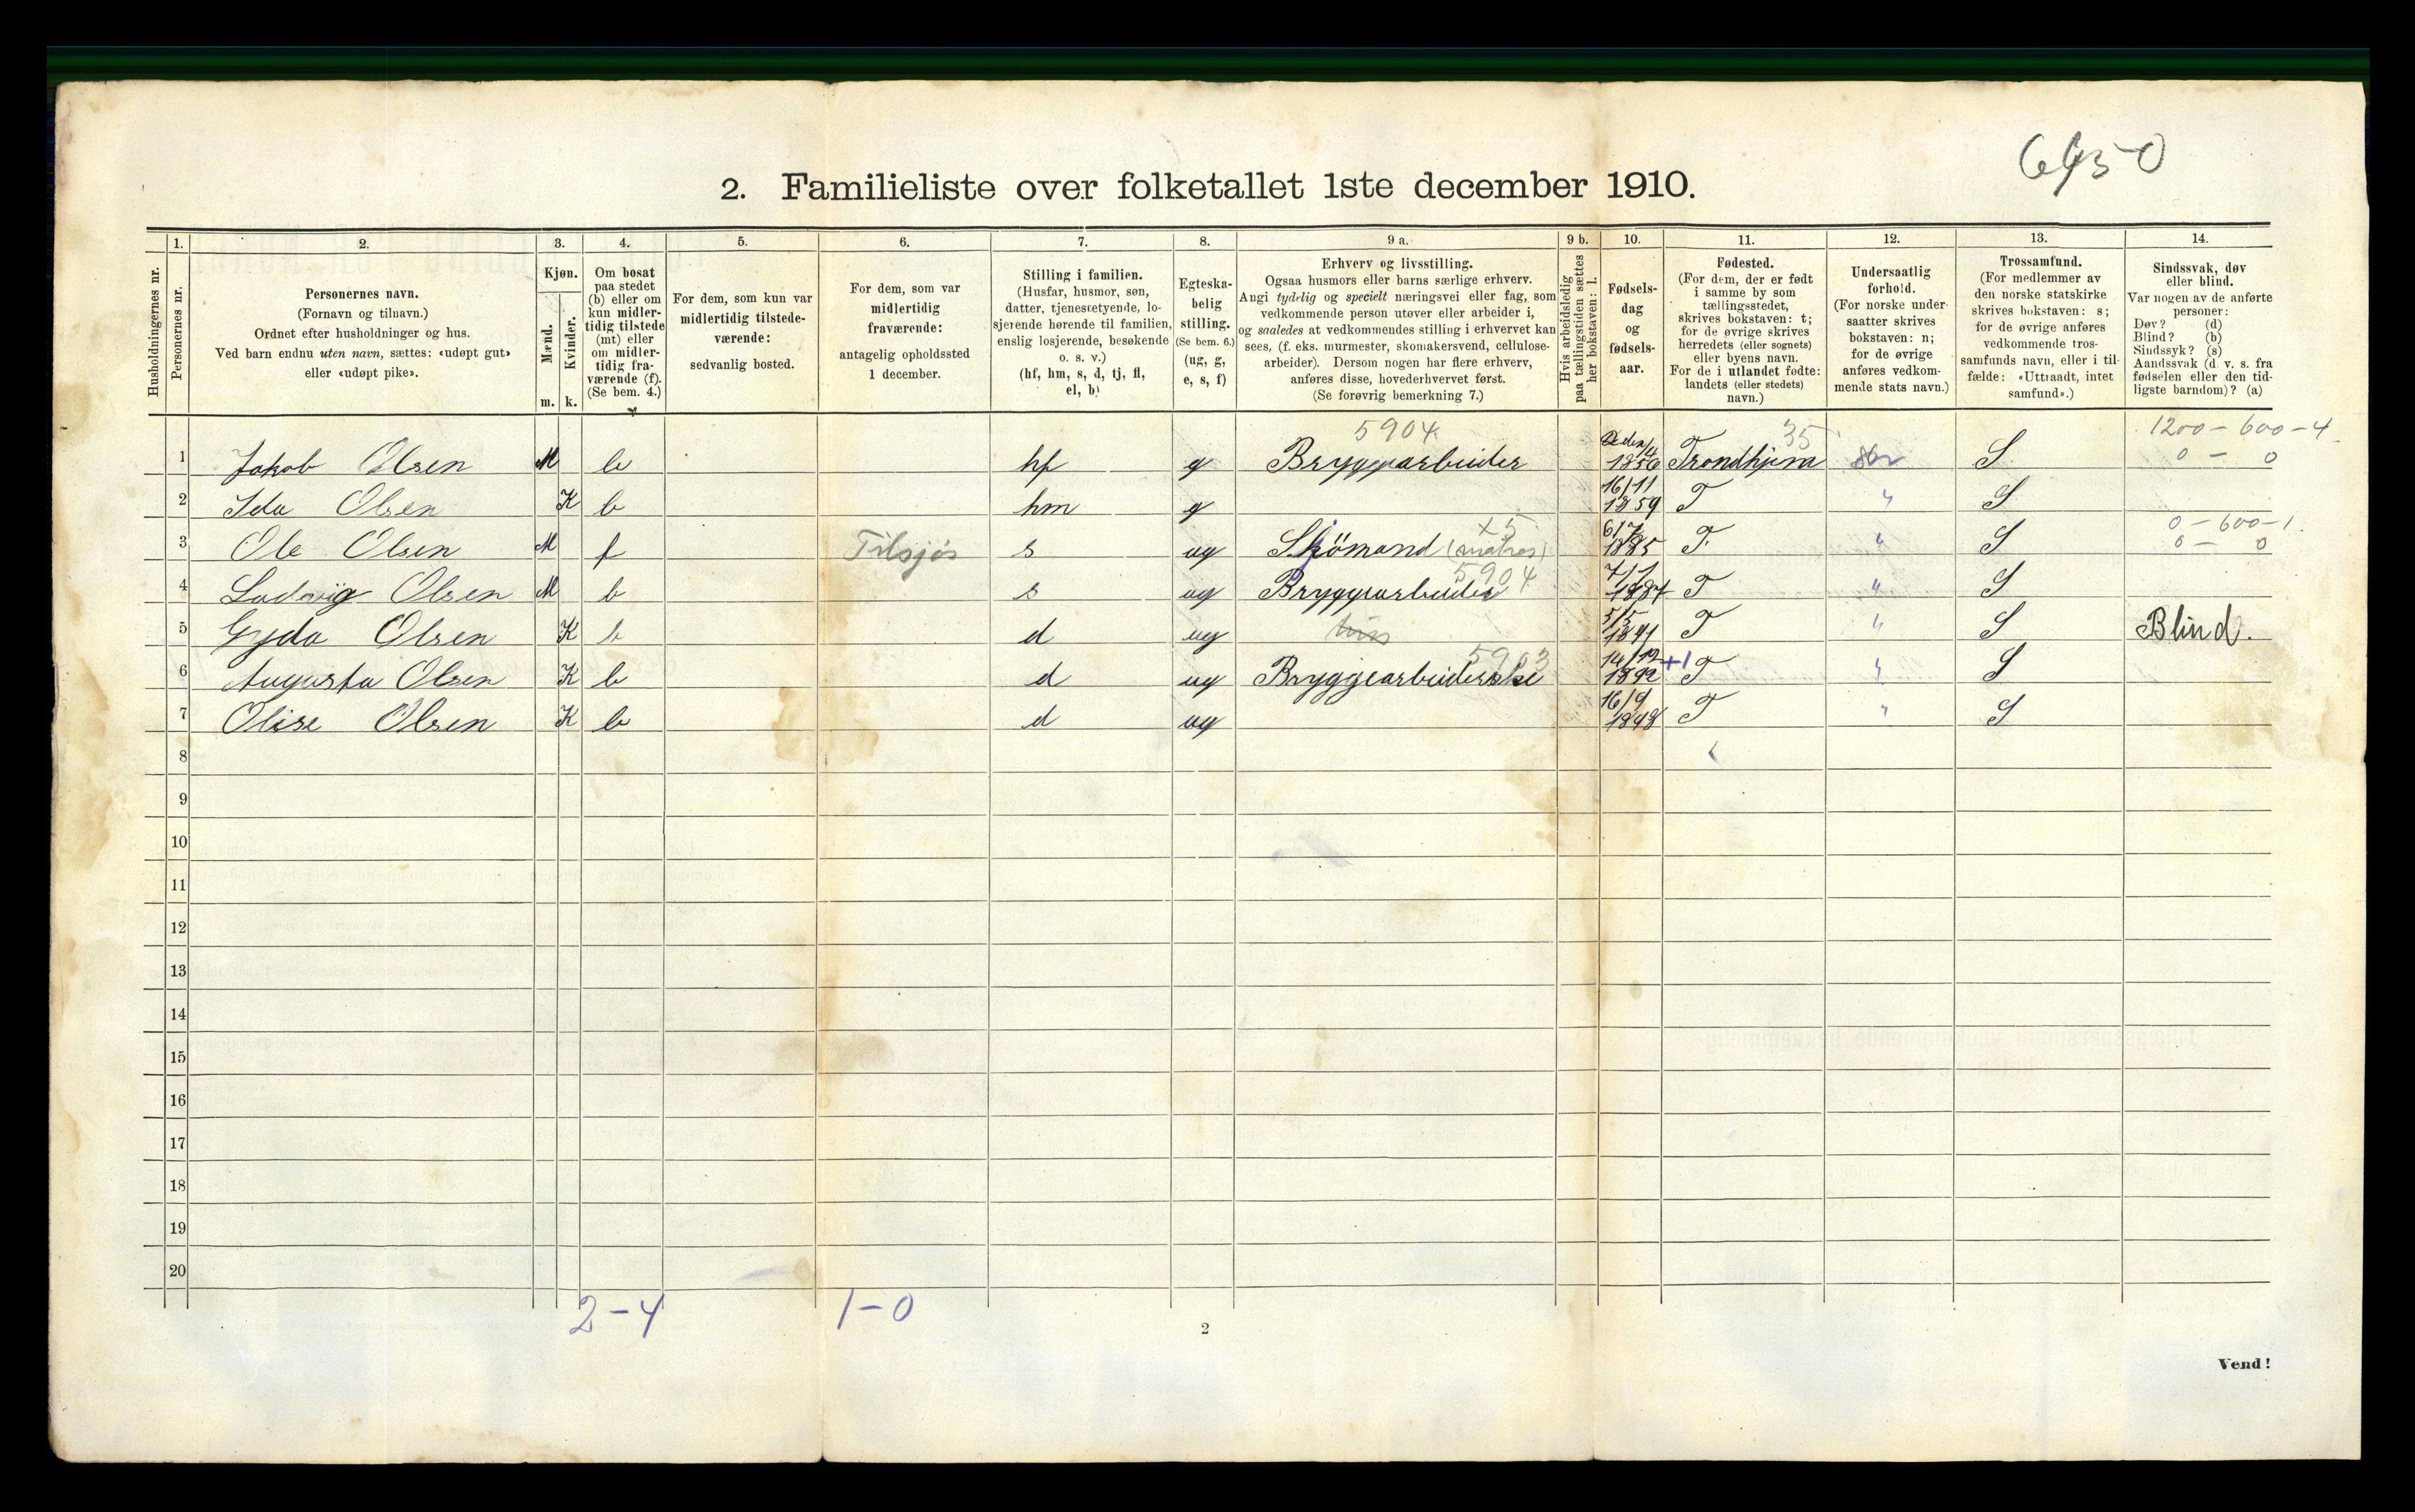 6450
2. Familieliste over folketallet 1ste december 1910.
1. 2. 3. 4. 5. 6. 7. 8. 9 a. 9 b. 10. 11. 12. 13. 14.
Husholdningernes nr.
Personernes nr.
Personernes navn.
(Fornavn og tilnavn.)
Ordnet efter husholdninger og hus.
Ved barn endnu uten navn, sættes: «udøpt gut»
eller «udøpt pike».
Kjøn.
Mænd.
Kvinder.
m. k.
Om bosat
paa stedet
(b) eller om
kun midler-
tidig tilstede
(mt) eller
om midler-
tidig fra-
værende (f).
(Se bem. 4.)
For dem, som kun var
midlertidig tilstede-
værende:
sedvanlig bosted.
For dem, som var
midlertidig
fraværende:
antagelig opholdssted
1 december.
Stilling i familien.
(Husfar, husmor, søn,
datter, tjenestetyende, lo-
sjerende hørende til familien,
enslig losjerende, besøkende
o. s. v.)
(hf, hm, s, d, tj, fl,
el, b)
Egteska-
belig
stilling.
(Se bem. 6.)
(ug, g,
e, s, f)
Erhverv og livsstilling.
Ogsaa husmors eller barns særlige erhverv.
Angi tydelig og specielt næringsvei eller fag, som
vedkommende person utøver eller arbeider i,
og saaledes at vedkommendes stilling i erhvervet kan
sees, (f. eks. murmester, skomakersvend, cellulose-
arbeider). Dersom nogen har flere erhverv,
anføres disse, hovederhvervet først.
(Se forøvrig bemerkning 7.)
Hvis arbeidsledig
paa tællingstiden sættes
her bokstaven: l.
Fødsels-
dag
og
fødsels-
aar.
Fødested.
(For dem, der er født
i samme by som
tællingsstedet,
skrives bokstaven: t;
for de øvrige skrives
herredets (eller sognets)
eller byens navn.
For de i utlandet fødte:
landets (eller stedets)
navn.)
Undersaatlig
forhold.
(For norske under-
saatter skrives
bokstaven: n;
for de øvrige
anføres vedkom-
mende stats navn.)
Trossamfund.
(For medlemmer av
den norske statskirke
skrives bokstaven: s;
for de øvrige anføres
vedkommende tros-
samfunds navn, eller i til-
fælde: «Uttraadt, intet
samfund».)
Sindssvak, døv
eller blind.
Var nogen av de anførte
personer:
Døv? (d)
Blind? (b)
Sindssyk? (s)
Aandssvak (d. v. s. fra
fødselen eller den tid-
ligste barndom)? (a)
5904 35 1200-600-4
1 Jakob Olsen M b hf g Bryggearbeider 1856 Trondhjem S 0-0
2 Ida Olsen K b hm g 16/11 1859 T " S
x5 0-600-1
3 Ole Olsen M f Tilsjøs s ug Sjömand (matros) 6/7 1885 T. " S 0-0
5904
4 Ludvig Olsen M b s ug Bryggearbeider 7/7 1887 T " S
5 Gyda Olsen K b d ug 5/5 1891 T " S Blind.
5903
6 Augusta Olsen K b d ug Bryggearbeiderske 14/12 1892 +1 T " S
7 Olise Olsen K b d ug 16/9 1898 T " S
8
9
10
11
12
13
14
15
16
17
18
19
20
2-4 1-0
2
Vend!